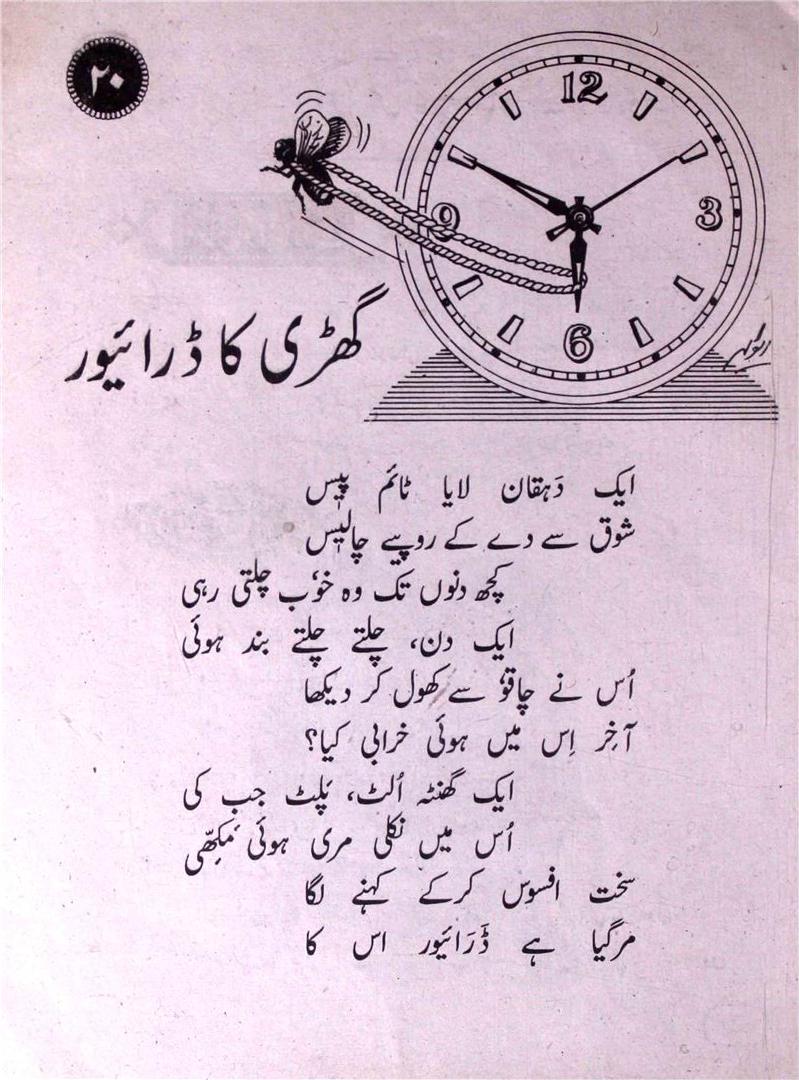 ۲۰
12
9
3
6
گھڑی کا ڈرائیور
ایک دَہقان لایا ٹائم پیس
شوق سے دے کے روپیے چالیس
کچھ دنوں تک وہ خوٗب چلتی رہی
ایک دن، چلتے چلتے بند ہوئی
اُس نے چاقوٗ سے کھول کر دیکھا
آخِر اِس میں ہوئی خرابی کیا؟
ایک گھنٹہ اُلٹ، پَلٹ جب کی
اُس میں نکلی مری ہوئی مَکھّی
سخت افسوس کرکے کہنے لگا
مرگیا ہے ڈَرَائیور اس کا